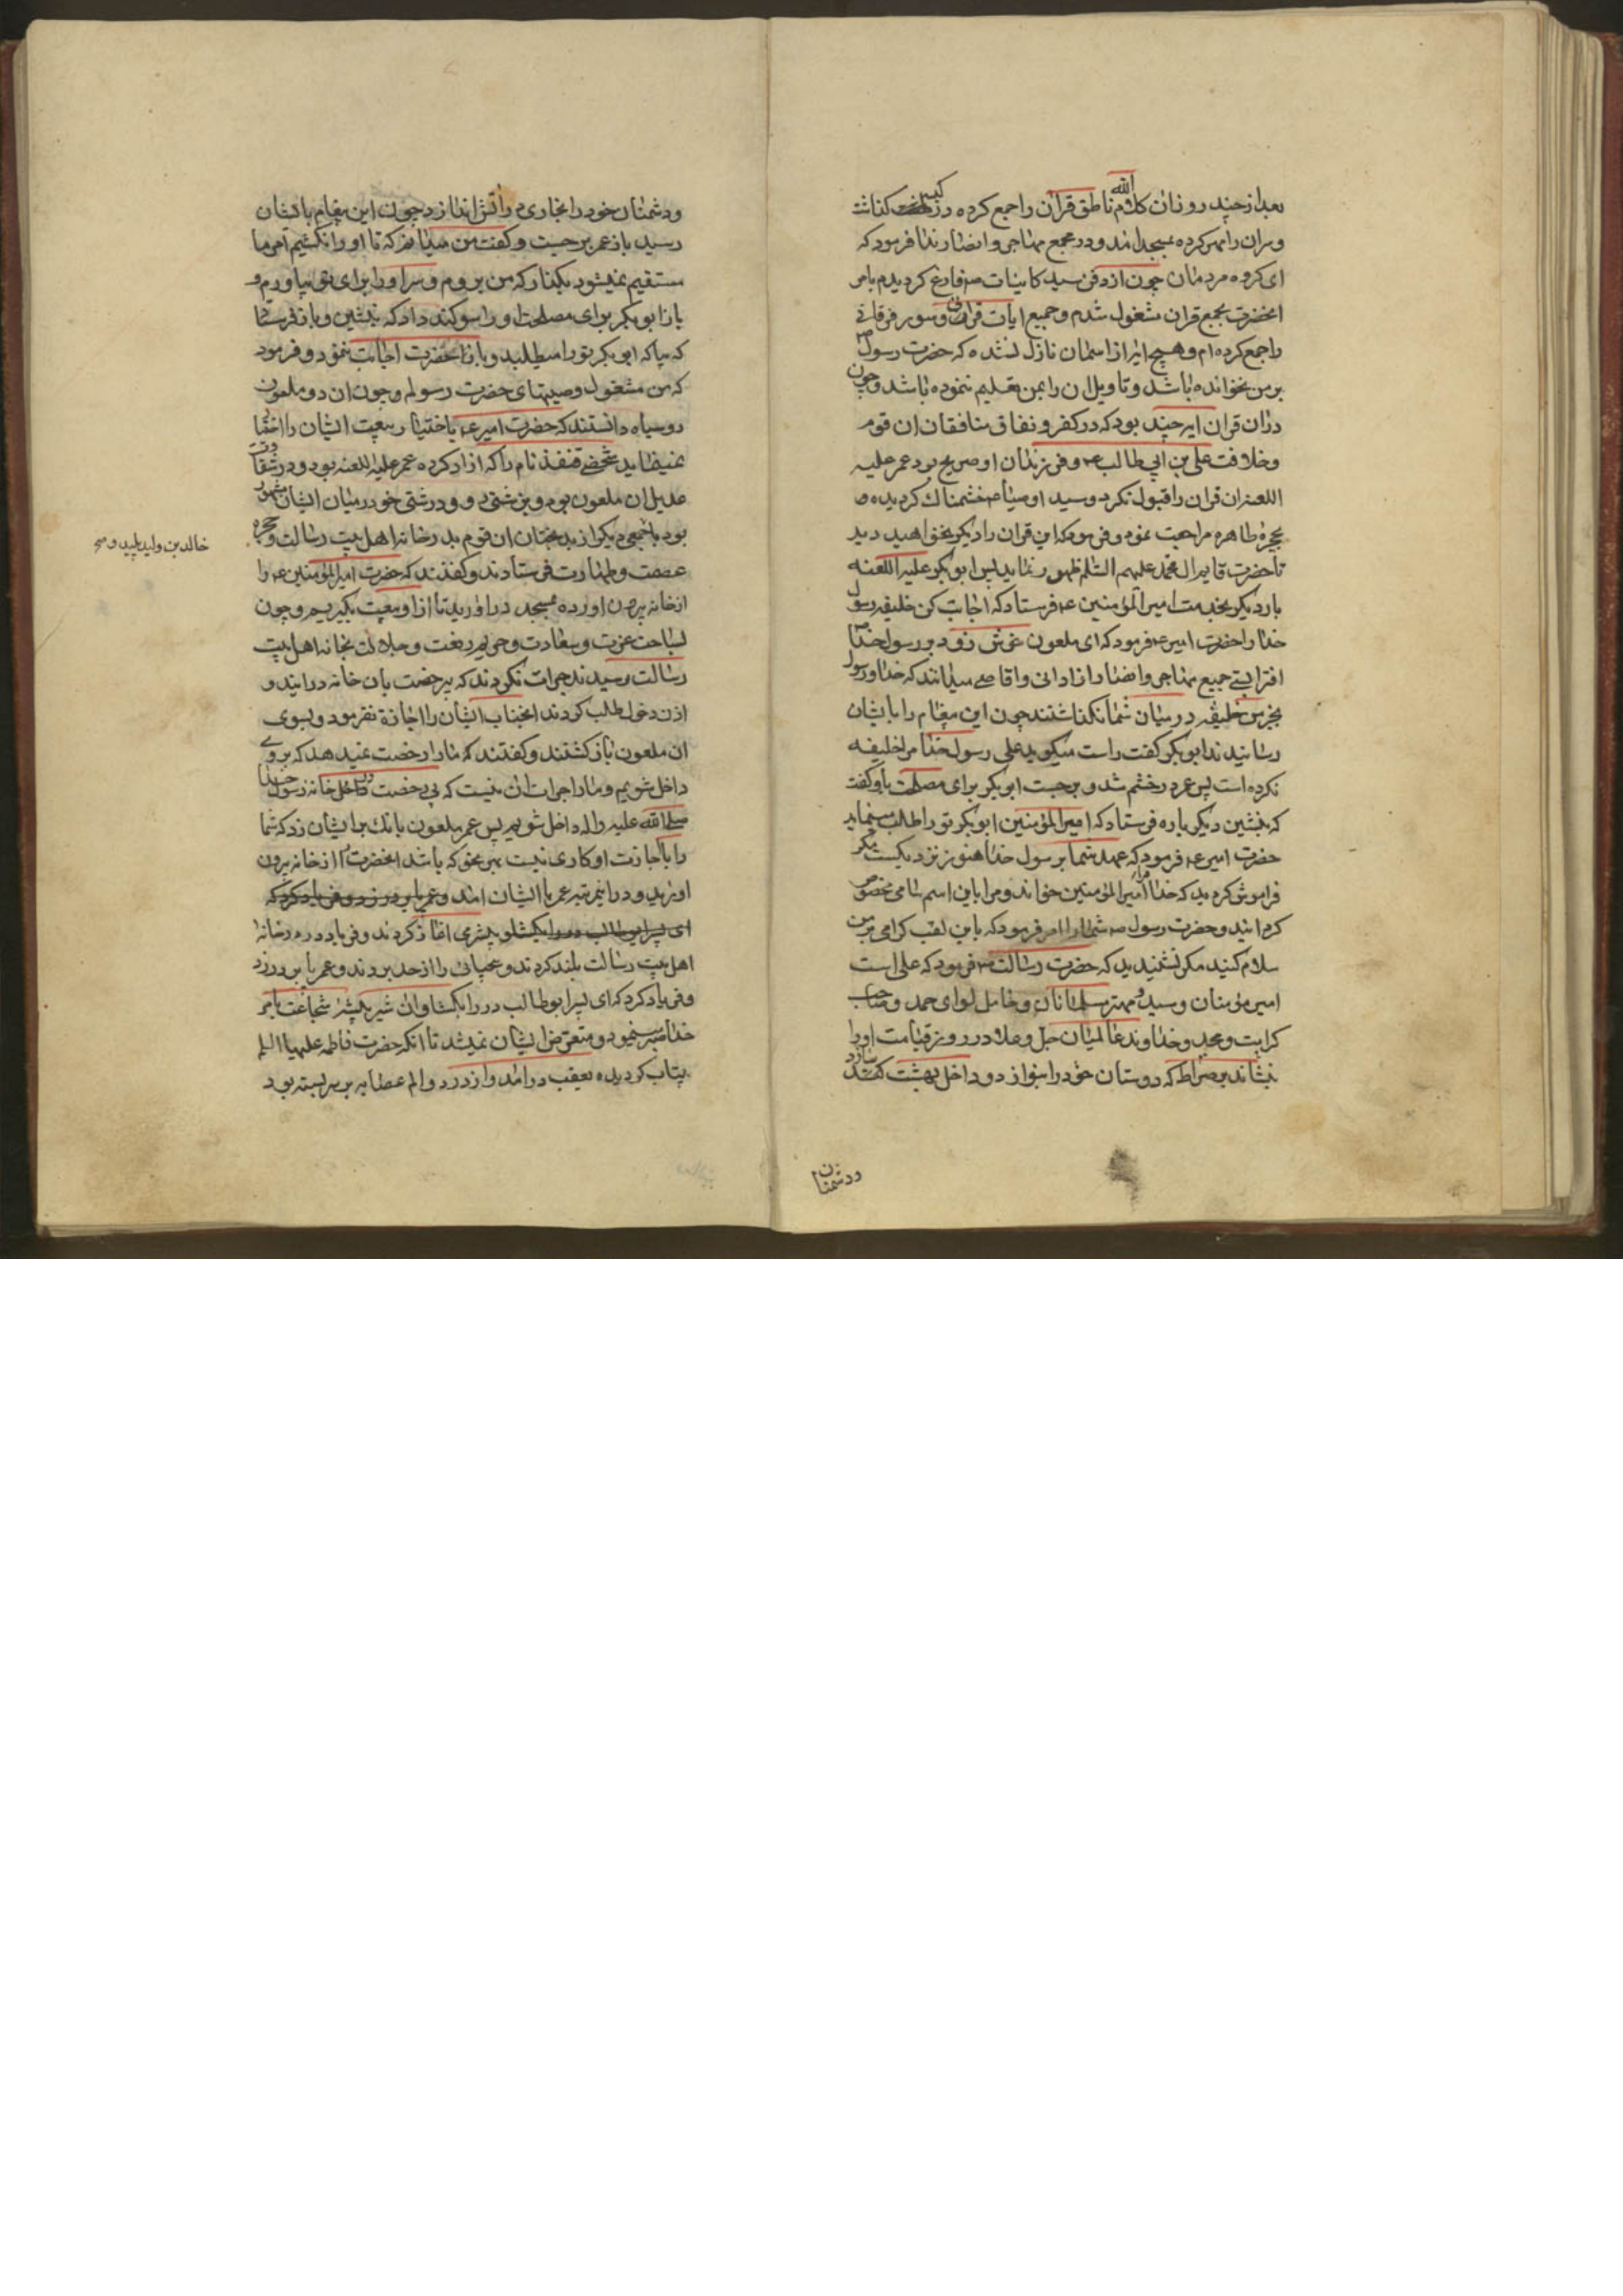 بعد از چند روز ان کلام الله ناطق قران را جمع کرده در کیسه کذاشت
و سران را مهر کرده بمسجد امد و در مجمع مهاجر و انصار ندا فرمود که
ای کروه مردمان چون از دفن سید کاینات ص فارغ کردیدم بامر
انحضرت بجمع قران مشغول شدم و جمیع ایات قرانی و سور فرقانی
را جمع کرده ام و هیچ ایه از اسمان نازل نشده که حضرت رسول ص
بر من نخوانده باشد و تاویل ان را بمن تعلیم ننموده باشد و چون
دران قران ایه چند بود که در کفر و نفاق منافقان ان قوم
و خلافت علی بن ابی طالب ع و فرزندان او صریح بود عمر علیه
اللعنه ان قران را قبول نکرد و سید اوصیا ص خشمناک کردیده
بحجره طاهره مراجعت نمود و فرمود که این قران را دیکر نخواهید دید
تا حضرت قایم ال محمد علیهم السلم ظهور نماید پس ابوبکر علیه اللعنه
بار دیکر بخدمت امیر المؤمنین ع فرستاد که اجابت کن خلیفه رسول
خدا را حضرت امیر ع فرمود که ای ملعون عوض زود بر رسول خدا ص
افترا بستی جمیع مهاجر و انصار از ادانی و اقاصی میدانند که خدا و رسول
بجز من خلیفه در میان شما نکذاشتند چون این پیغام را بایشان
رسانیدند ابوبکر کفت راست میکوید علی رسول خدا مرا خلیفه
نکرده است پس عمر در خشم شد و برجست ابوبکر برای مصلحت باو کفت
که بنشین دیکر باره فرستاد که امیر المؤمنین ابوبکر تو را طلب مینماید
حضرت امیر ع فرمود که عهد شما برسول خدا هنوز نزدیکست مکر
فراموش کردید که خدا مرا امیر المؤمنین خواند و مرا باین اسم سامی مخصوص
کردانید و حضرت رسول ص شما را امر فرمود که باین لقب کرامی بر من
سلام کنید مکر نشنیدید که حضرت رسالت ص فرمود که علی است
امیر مؤمنان و سید و مهتر مسلمانان و حامل لوای حمد و صاحب
کرامت و مجد و خداوند عالمیان جل و علا در روز قیامت او را
بنشاند بر صراط که دوستان خود را بنوازد و داخل بهشت سازد
ودشمنان
و دشمنان خود را بخاری در آتش اندازد چون این پیغام بایشان
رسید باز عمر برجست و کفت من میدانم که تا او را نکشیم امر ما
مستقیم نمیشود بکذار که من بروم و سر او را برای تو بیاورم و
باز ابوبکر برای مصلحت او را سوکند داد که بنشین و باز فرستاد
که بیا که ابوبکر تو را میطلبد و باز انحضرت اجابت ننمود و فرمود
که من مشغول وصیتهای حضرت رسولم و چون ان دو ملعون
روسیاه دانستند که حضرت امیر ع باختیار بیعت ایشان را اختیار
نمیفرماید شخصی قنفذ نام را که ازاد کرده عمر علیه اللعنه بود و در شقاوت
عدیل ان ملعون بود و بزشتی و درشتی خود در میان ایشان مشهور
بود با جمعی دیکر از بدبختان ان قوم بدر خانه اهل بیت رسالت و حجره
خالد بن ولید پلید و
عصمت و طهارت فرستادند و کفتند که حضرت امیر المؤمنین ع را
از خانه بیرون اورده بمسجد در اورید تا از او بیعت بکیریم و چون
بساحت عزت و سعادت و حریم رفعت و جلالت بخانه اهل بیت
رسالت رسیدند جرات نکردند که بیرخصت بان خانه درایند و
اذن دخول طلب کردند انجناب ایشان را اجازة نفرمود و بسوی
ان ملعون باز کشتند و کفتند که ما را رخصت نمیدهد که بر وی
داخل شویم و ما را جرات ان نیست که بی رخصت داخل خانه رسول خدا
صلی الله علیه واله داخل شویم پس عمر ملعون بانک بر ایشان زد که شما
را باجازت او کاری نیست بهر نحو که باشد انحضرت را از خانه بیرون
اورید و در اینمرتبه عمر با ایشان امد و عمر پا بر در زد و فریاد کرد که
ای پسر ابوطالب در را بکشا و بیشرمی اغاز کردند و فریاد در در خانه
اهل بیت رسالت بلند کردند و بیحیائی را از حد بردند و عمر پا بر در زد
و فریاد کرد که ای پسر ابوطالب در را بکشا و ان شیر بیشه شجاعت بامر
خدا صبر مینمود و متعرض ایشان نمیشد تا انکه حضرت فاطمه علیها السلم
بیتاب کردیده بعقب در امد و از درد و الم عصابه بر سر بسته بود